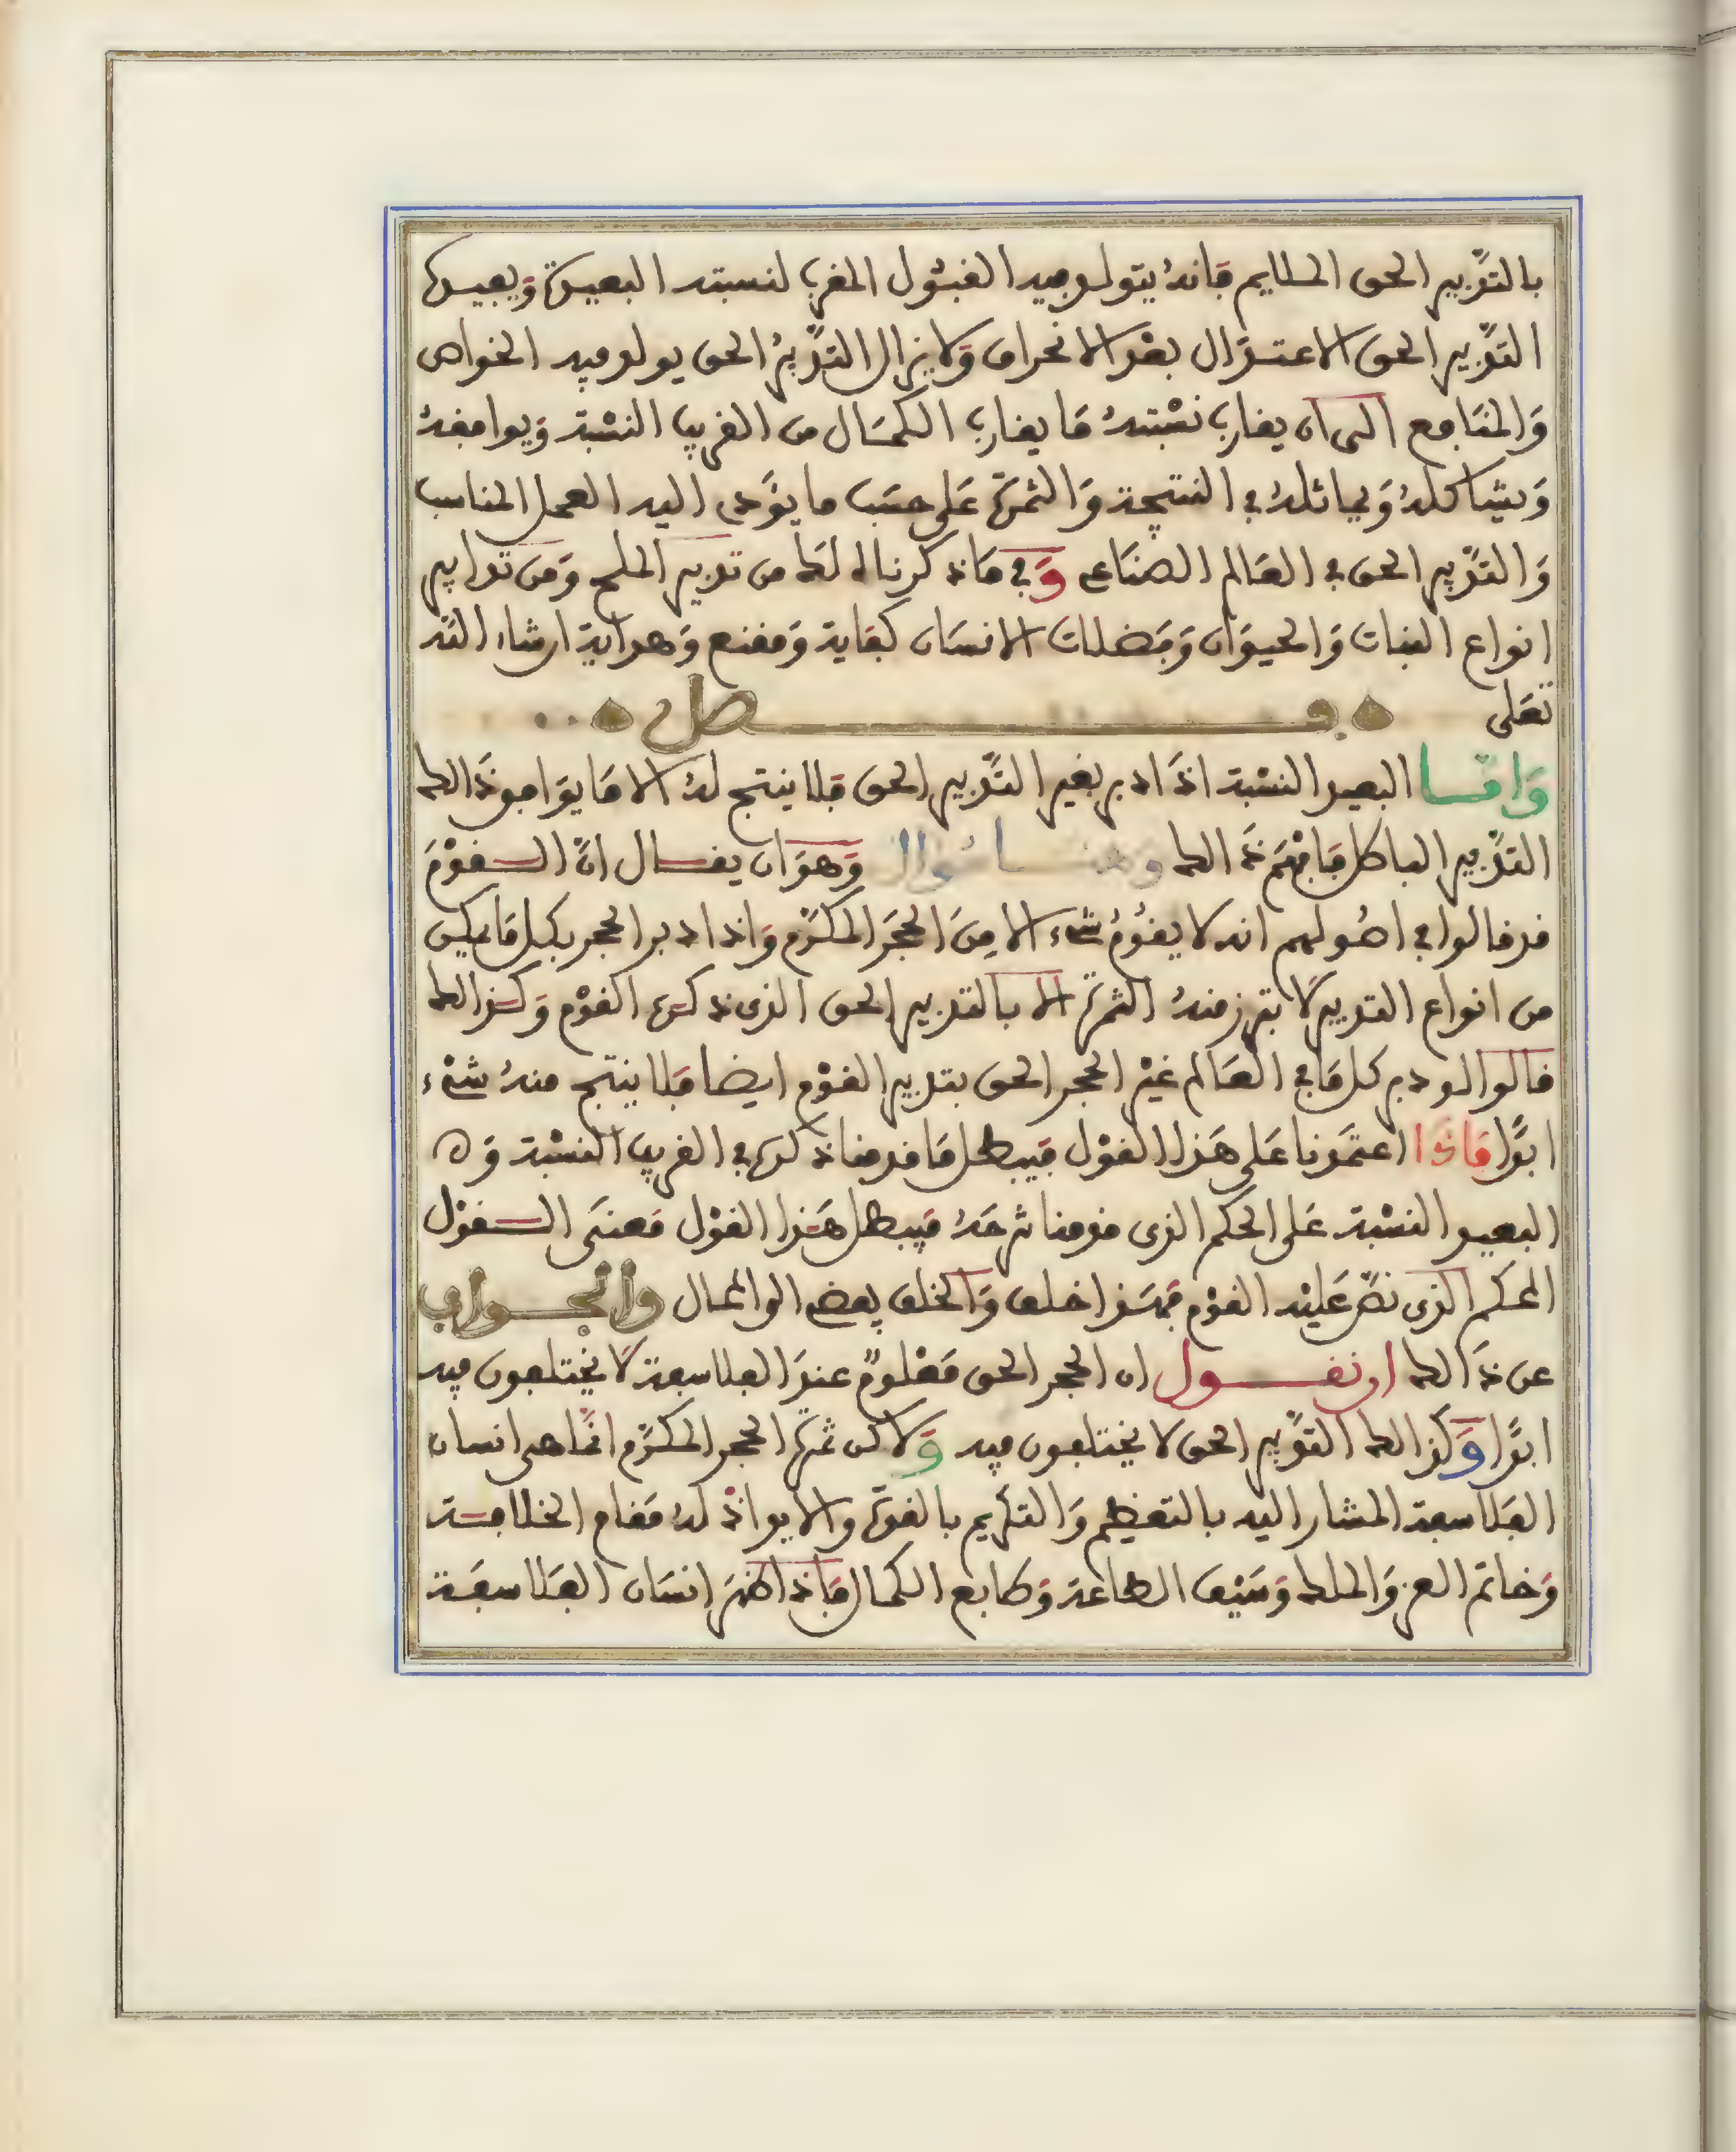 بالتدبير الحق الملايم فانه يتولد فيه القبول المقرب لنسبته البعيدة ويفيده
التدبير الحق الاعتدال بعد الانحراف ولا يزال التدبير الحق يولد فيه الخواص
والمنافع الى ان يقارب نسبته ما يقارب الكمال من القريب النسبة ويوافقه
ويشاكله ويماثله في النتيجة والثمرة على حسب ما يؤدى اليه العمل المناسب
والتدبير الحق في العالم الصناعى وفي ما ذكرناه لك من تدبير الملح ومن تدابير
انواع النبات والحيوان وفضلات الانسان كفاية ومقنع وهداية ان شاء الله
تعلى
فصل
واما البعيد النسبة اذا دبر بغير التدبير الحق فلا ينتج له الا ما يوافق ذالك
التدبير الباطل فافهم ذالك وهنا سؤال وهو ان يقال ان القوم
قد قالوا في اصولهم انه لا يقوم شىء الا من الحجر المكرم واذا دبر الحجر بكل ما يمكن
من انواع التدبير لا تبرز منه الثمرة الا بالتدبير الحق الذى ذكره القوم وكذالك
قالوا لو دبر كل ما في العالم غير الحجر الحق بتدبير القوم ايضا فلا ينتج منه شىء
ابدا فاذا اعتمدنا على هذا القول فيبطل ما قدمنا ذكره في القريب النسبة و ه
البعيد النسبة على الحكم الذى قدمنا شرحه فيبطل هذا القول معنى القول
المحكم الذى نص عليه القوم فهذا خلف والخلف يفضى الى المحال والجواب
عن ذالك ان نقول ان الحجر الحق معلوم عند الفلاسفة لا يختلفون فيه
ابدا وكذالك التدبير الحق لا يختلفون فيه ولاكن ثمرة الحجر المكرم انما هى انسان
الفلاسفة المشار اليه بالتعظيم والتكريم بالقوة والا فواذ له مقام الخلافة
وخاتم العز والملك وسيف الطاعة وطابع الكمال فاذا ظهر انسان الفلاسفة